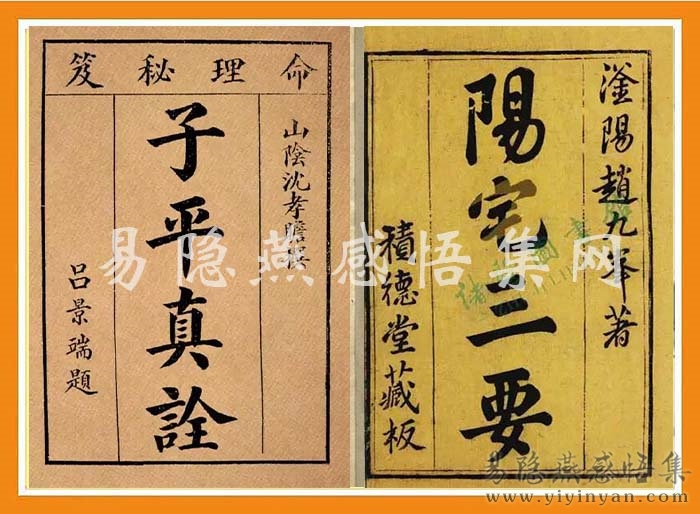 命理秘笈
山陰沈孝瞻撰
子平真詮
吕景端題
滏陽趙九峯著
陽宅三要
積德堂藏板
易隐燕感悟集网
易隐燕感悟集
www.yiyinyan.com